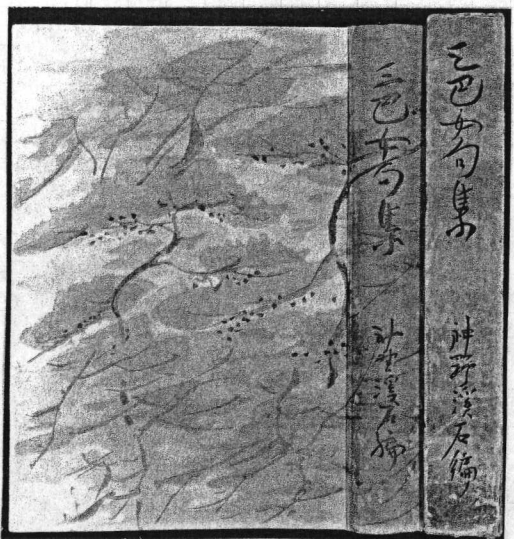 三巴女句集
神野溪石編
三巴女句集
神野溪石編